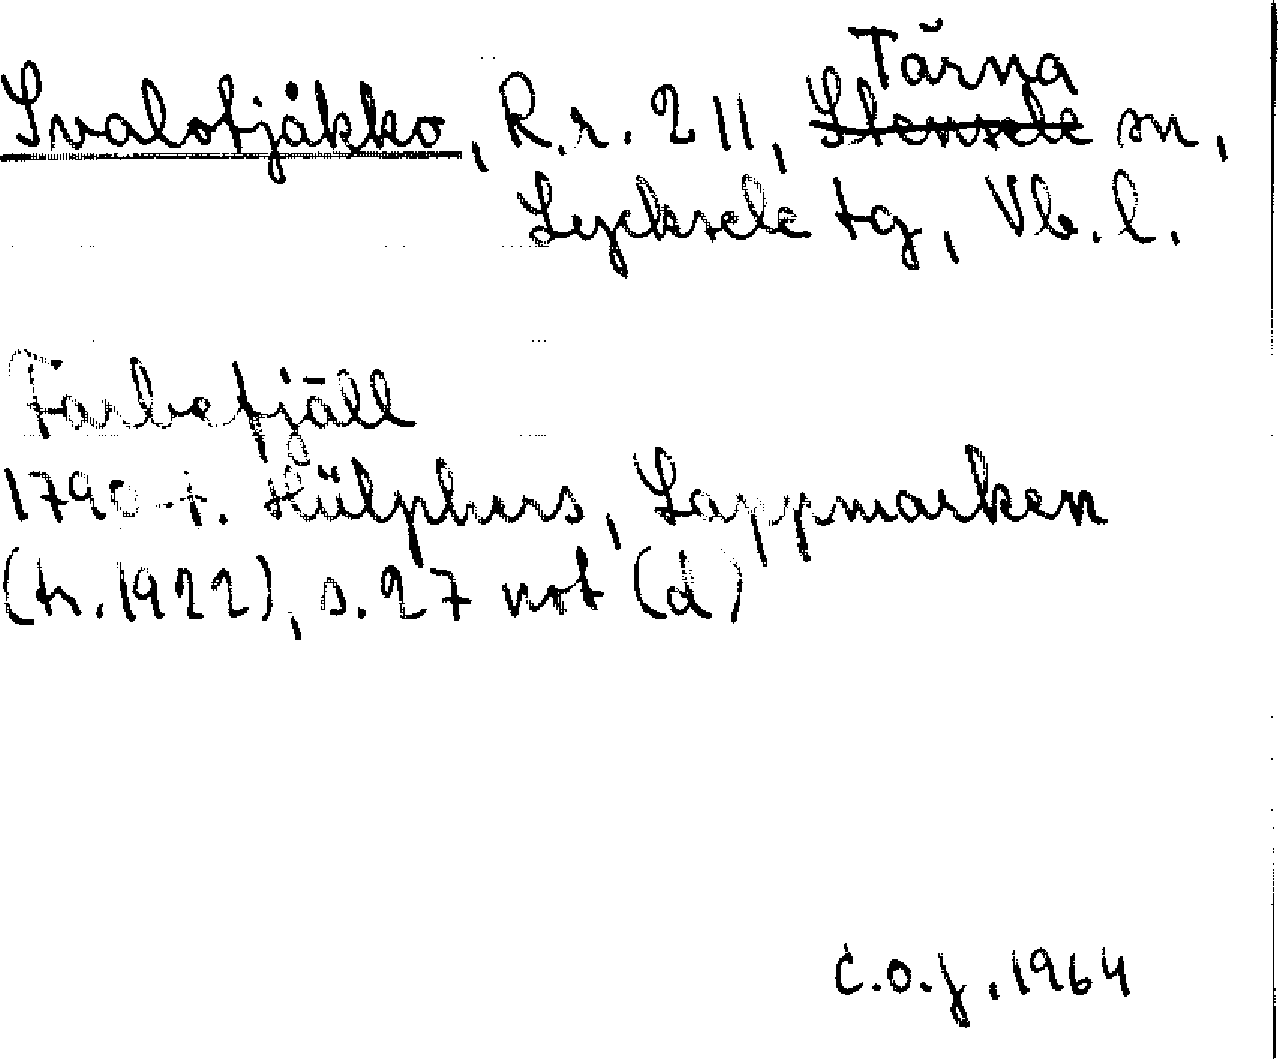 Tärna
Svalotjåkko, R.r. 211, Stensele sn,
Lycksele tg, Vb. l.
Farbefjäll
1790-t. Hülphers, Lappmarken
(tr. 1922), s. 27 not (d)
C.O.J. 1964